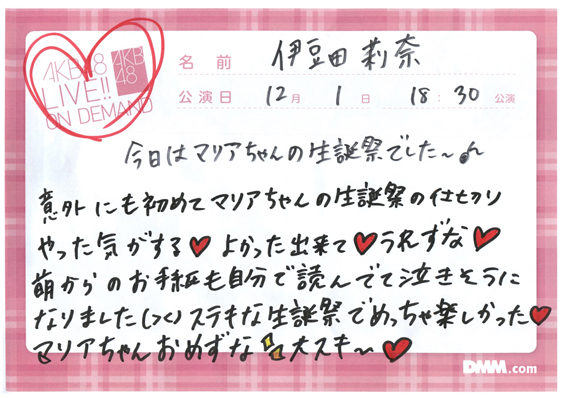 AKB48
LIVE!!
ON DEMAND
AKB
48
名前 伊豆田 莉奈
公演日 12月 1日 18:30公演
今日はマリアちゃんの生誕祭でした〜♪
意外にも初めてマリアちゃんの生誕祭の仕切り
やった気がする♥よかった出来て♥うれずな♥
萌からのお手紙も自分で読んでて泣きそうに
なりました(>_<)ステキな生誕祭でめっちゃ楽しかった♥
マリアちゃんおめずな✨大スキ〜♥
DMM.com